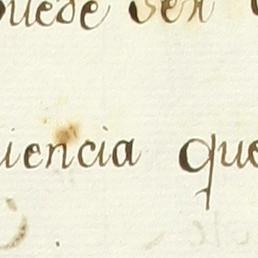 puede ser
iencia que